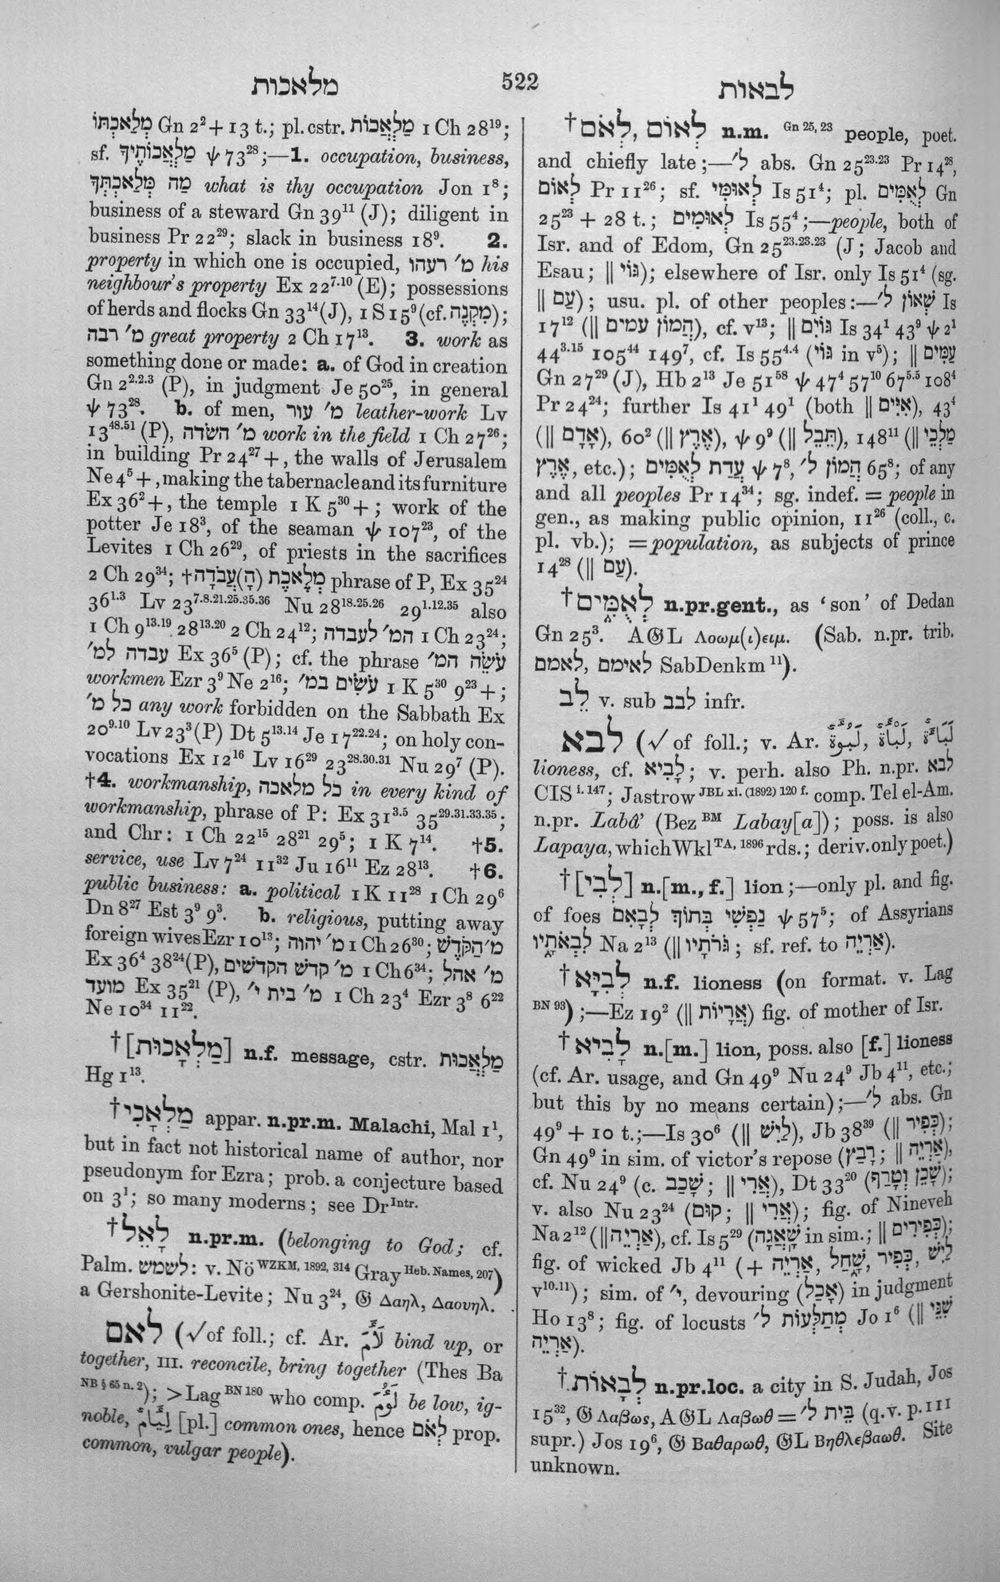 מלאכות 522 לבאות
מְלַאכְתּוֹ Gn 2² + 13 t.; pl. cstr. מַלְאֲכוֹת 1 Ch 28¹⁹;
sf. מַלְאֲכוֹתֶיךָ ψ 73²⁸;—1. occupation, business,
מַה מְּלַאכְתְּךָ what is thy occupation Jon 1⁸;
business of a steward Gn 39¹¹ (J); diligent in
business Pr 22²⁹; slack in business 18⁹. 2.
property in which one is occupied, מ׳ רעהו his
neighbour's property Ex 22⁷·¹⁰ (E); possessions
of herds and flocks Gn 33¹⁴ (J), 1 S 15⁹ (cf. מִקְנֶה);
מ׳ רבה great property 2 Ch 17¹³. 3. work as
something done or made: a. of God in creation
Gn 2²·²·³ (P), in judgment Je 50²⁵, in general
ψ 73²⁸. b. of men, מ׳ עור leather-work Lv
13⁴⁸·⁵¹ (P), מ׳ השׂדה work in the field 1 Ch 27²⁶;
in building Pr 24²⁷ +, the walls of Jerusalem
Ne 4⁵ +, making the tabernacle and its furniture
Ex 36² +, the temple 1 K 5³⁰ + ; work of the
potter Je 18³, of the seaman ψ 107²³, of the
Levites 1 Ch 26²⁹, of priests in the sacrifices
2 Ch 29³⁴; †מְלֶאכֶת (הָ)עֲבֹדָה phrase of P, Ex 35²⁴
36¹·³ Lv 23⁷·⁸·²¹·²⁵·³⁵·³⁶ Nu 28¹⁸·²⁵·²⁶ 29¹·¹²·³⁵ also
1 Ch 9¹³·¹⁹ 28¹³·²⁰ 2 Ch 24¹²; המ׳ לעבדה 1 Ch 23²⁴;
עבדה למ׳ Ex 36⁵ (P); cf. the phrase עֹשֵׂה המ׳
workmen Ezr 3⁹ Ne 2¹⁶; עֹשִׂים במ׳ 1 K 5³⁰ 9²³ + ;
כל מ׳ any work forbidden on the Sabbath Ex
20⁹·¹⁰ Lv 23³ (P) Dt 5¹³·¹⁴ Je 17²²·²⁴; on holy con-
vocations Ex 12¹⁶ Lv 16²⁹ 23²⁸·³⁰·³¹ Nu 29⁷ (P).
†4. workmanship, כל מלאכה in every kind of
workmanship, phrase of P: Ex 31³·⁵ 35²⁹·³¹·³³·³⁵;
and Chr: 1 Ch 22¹⁵ 28²¹ 29⁵; 1 K 7¹⁴. †5.
service, use Lv 7²⁴ 11³² Ju 16¹¹ Ez 28¹³. †6.
public business: a. political 1 K 11²⁸ 1 Ch 29⁶
Dn 8²⁷ Est 3⁹ 9³. b. religious, putting away
foreign wives Ezr 10¹³; מ׳ יהוה 1 Ch 26³⁰; מ׳ הַקֹּדֶשׁ
Ex 36⁴ 38²⁴ (P), מ׳ קדש הקדשים 1 Ch 6³⁴; מ׳ אהל
מועד Ex 35²¹ (P), מ׳ בית י׳ 1 Ch 23⁴ Ezr 3⁸ 6²²
Ne 10³⁴ 11²².
†[מַלְאָכוּת] n.f. message, cstr. מַלְאֲכוּת
Hg 1¹³.
†מַלְאָכִי appar. n.pr.m. Malachi, Mal 1¹,
but in fact not historical name of author, nor
pseudonym for Ezra; prob. a conjecture based
on 3¹; so many moderns; see Dr Intr.
†לָאֵל n.pr.m. (belonging to God; cf.
Palm. לשמש: v. Nö WZKM, 1892, 314 Gray Heb. Names, 207)
a Gershonite-Levite; Nu 3²⁴, 𝔊 Δαηλ, Δαουηλ.
לאם (√ of foll.; cf. Ar. لَأَمَ bind up, or
together, III. reconcile, bring together (Thes Ba
NB § 65 n. 2); > Lag BN 180 who comp. لَؤُمَ be low, ig-
noble, [pl.] common ones, hence לְאֹם prop.
common, vulgar people).
†לְאֹם, לְאוֹם n.m. Gn 25, 23 people, poet.
and chiefly late;—ל׳ abs. Gn 25²³·²³ Pr 14²⁸,
לְאוֹם Pr 11²⁶; sf. לְאוּמִּי Is 51⁴; pl. לְאֻמִּים Gn
25²³ + 28 t.; לְאוּמִּים Is 55⁴;—people, both of
Isr. and of Edom, Gn 25²³·²³·²³ (J; Jacob and
Esau; || גּוֹי); elsewhere of Isr. only Is 51⁴ (sg.
|| עַם); usu. pl. of other peoples:—שְׁאוֹן ל׳ Is
17¹² (|| הֲמוֹן עמים), cf. v¹³; || גּוֹיִם Is 34¹ 43⁹ ψ 2¹
44³·¹⁵ 105⁴⁴ 149⁷, cf. Is 55⁴·⁴ (גּוֹי in v⁵); || עַמִּים
Gn 27²⁹ (J), Hb 2¹³ Je 51⁵⁸ ψ 47⁴ 57¹⁰ 67⁵·⁵ 108⁴
Pr 24²⁴; further Is 41¹ 49¹ (both || אִיִּים), 43⁴
(|| אָדָם), 60² (|| אֶרֶץ), ψ 9⁹ (|| תֵּבֵל), 148¹¹ (|| מַלְכֵי
אֶרֶץ, etc.); עֲדַת לְאֻמִּים ψ 7⁸, הֲמוֹן ל׳ 65⁸; of any
and all peoples Pr 14³⁴; sg. indef. = people in
gen., as making public opinion, 11²⁶ (coll., c.
pl. vb.); = population, as subjects of prince
14²⁸ (|| עַם).
†לְאֻמִּים n.pr.gent., as 'son' of Dedan
Gn 25³. A𝔊L Λοωμ(ι)ειμ. (Sab. n.pr. trib.
לאמם, לאימם SabDenkm ¹¹).
לֵב v. sub לבב infr.
לבא (√ of foll.; v. Ar. لَبُوَة, لَبْأَة, لَبَاة
lioness, cf. לָבִיא; v. perh. also Ph. n.pr. לבא
CIS i. 147; Jastrow JBL xi. (1892) 120 f. comp. Tel el-Am.
n.pr. Labâ' (Bez BM Labay[a]); poss. is also
Lapaya, which Wkl TA, 1896 rds.; deriv. only poet.)
†[לְבִי] n.[m., f.] lion;—only pl. and fig.
of foes נַפְשִׁי בְּתוֹךְ לְבָאִם ψ 57⁵; of Assyrians
לְבְאֹתָיו Na 2¹³ (|| גֹּרֹתָיו; sf. ref. to אַרְיֵה).
†לְבִיָּא n.f. lioness (on format. v. Lag
BN 93);—Ez 19² (|| אֲרָיוֹת) fig. of mother of Isr.
†לָבִיא n.[m.] lion, poss. also [f.] lioness
(cf. Ar. usage, and Gn 49⁹ Nu 24⁹ Jb 4¹¹, etc.;
but this by no means certain);—ל׳ abs. Gn
49⁹ + 10 t.;—Is 30⁶ (|| לַיִשׁ), Jb 38³⁹ (|| כְּפִיר);
Gn 49⁹ in sim. of victor's repose (רָבַץ; || אַרְיֵה),
cf. Nu 24⁹ (c. שָׁכַב; || אֲרִי), Dt 33²⁰ (שָׁכֵן וְטָרַף);
v. also Nu 23²⁴ (קוּם; || אֲרִי); fig. of Nineveh
Na 2¹² (|| אַרְיֵה), cf. Is 5²⁹ (שָׁאֲגָה in sim.; || כְּפִירִים);
fig. of wicked Jb 4¹¹ (+ לַיִשׁ, כְּפִיר, שַׁחַל, אַרְיֵה
v¹⁰·¹¹); sim. of י׳, devouring (אָכַל) in judgment
Ho 13⁸; fig. of locusts מְתַלְּעוֹת ל׳ Jo 1⁶ (|| שִׁנֵּי
אַרְיֵה).
†לְבָאוֹת n.pr.loc. a city in S. Judah, Jos
15³², 𝔊 Λαβως, A𝔊L Λαβωθ = בֵּית ל׳ (q.v. p. 111
supr.) Jos 19⁶, 𝔊 Βαθαρωθ, 𝔊L Βηθλεβαωθ. Site
unknown.